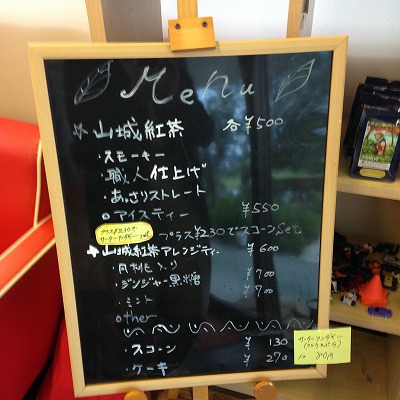 Menu
山城紅茶 各¥500
・スモーキー
・職人仕上げ
・あっさりストレート
○アイスティー ¥550
プラス¥230でスコーンset
プラス¥230で
サーターアンダギーset
山城紅茶アレンジティー ¥600
・月桃
・ジンジャー黒糖 ¥700
・ミント ¥700
other
・スコーン ¥130
・ケーキ ¥270
サーターアンダギー